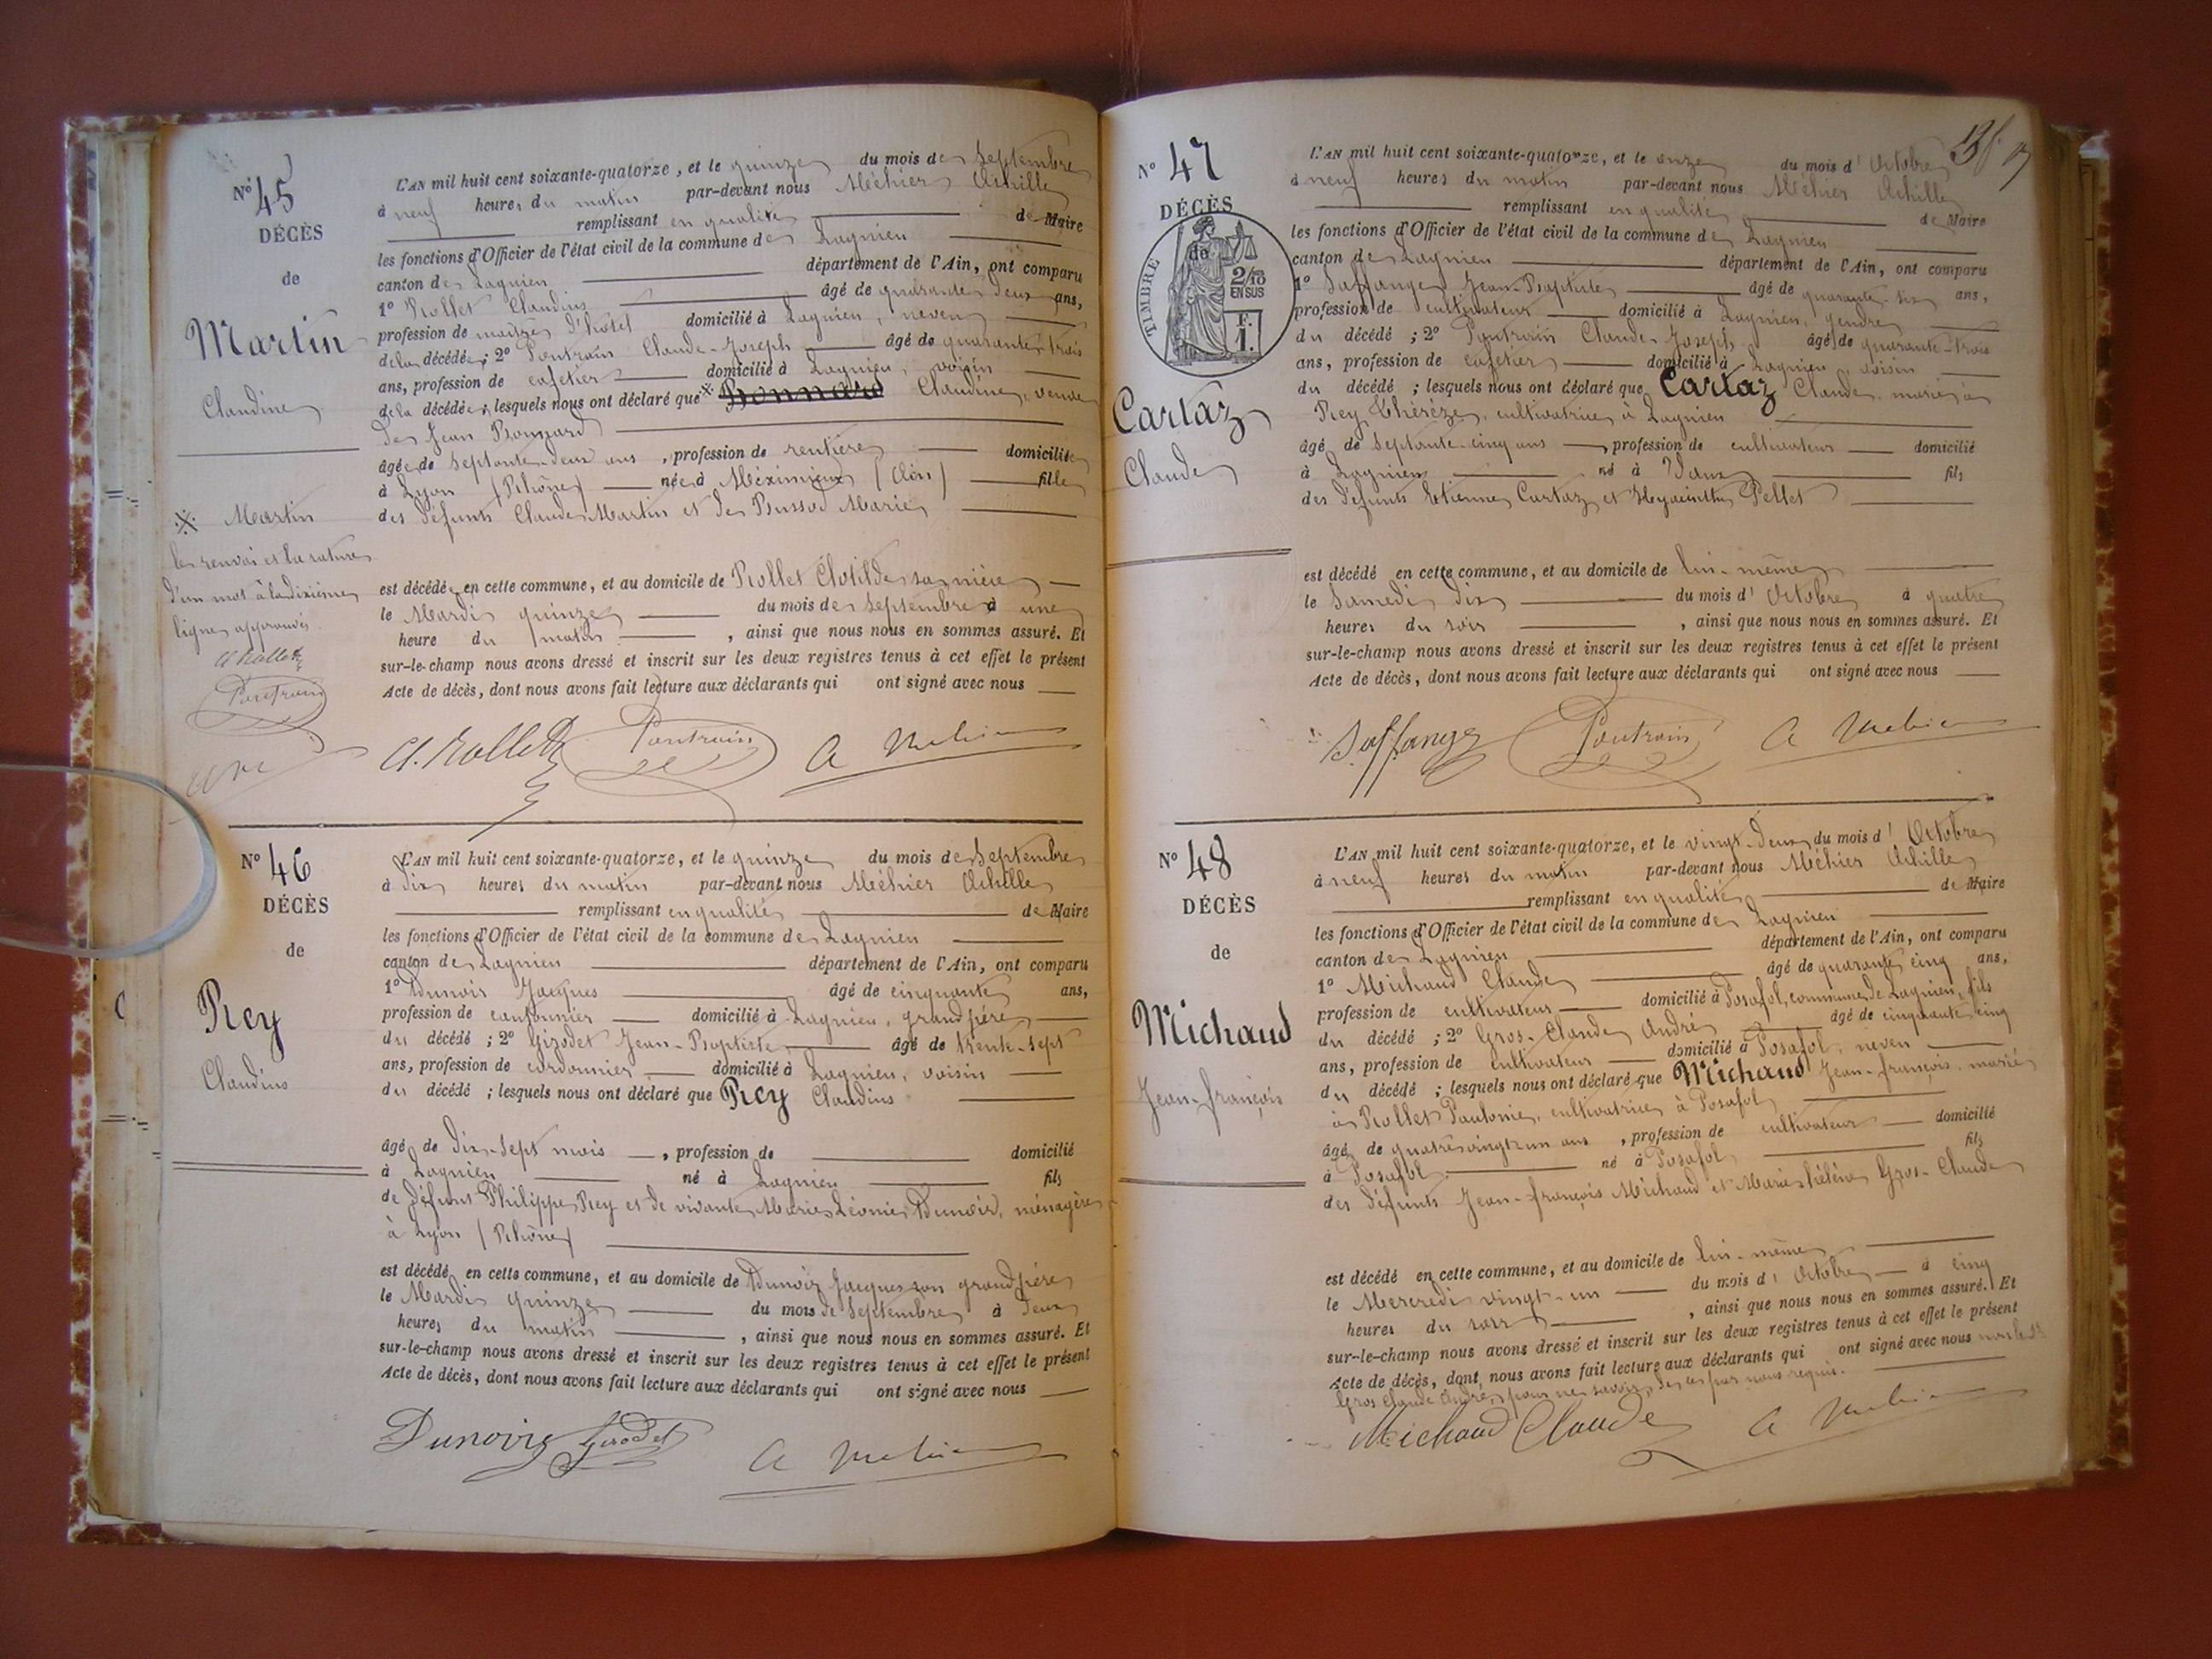 N° 45
DÉCÈS
de
Martin
Claudine
※ Martin
les renvoi et la rature
d'un mot à la dixième
ligne approuvés
Cl Rollet
Pontrain
L'AN mil huit cent soixante-quatorze, et le quinze du mois de Septembre
à neuf heures du matin par-devant nous Méhier Achille
remplissant en qualité de Maire
les fonctions d'Officier de l'état civil de la commune de Lagnieu
canton de Lagnieu département de l'Ain, ont comparu
1° Rollet Claudius âgé de quarante deux ans,
profession de maître d'hôtel domicilié à Lagnieu, neveu
de la décédée; 2° Pontrain Claude-Joseph âgé de quarante-trois
ans, profession de cafetier domicilié à Lagnieu, voisin
de la décédée; lesquels nous ont déclaré que ※ Bonnard Claudine, veuve
de Jean Bonnard
âgée de septante-deux ans, profession de rentière domiciliée
à Lyon (Rhône) née à Méximieux (Ain) fille
des défunts Claude Martin et de Bussod Marie
est décédée en cette commune, et au domicile de Rollet Clotilde sa nièce
le Mardi quinze du mois de Septembre à une
heure du matin, ainsi que nous nous en sommes assuré. Et
sur-le-champ nous avons dressé et inscrit sur les deux registres tenus à cet effet le présent
Acte de décès, dont nous avons fait lecture aux déclarants qui ont signé avec nous
Cl. Rollet Pontrain A Mehier
N° 46
DÉCÈS
de
Rey
Claudius
L'AN mil huit cent soixante-quatorze, et le quinze du mois de Septembre
à dix heures du matin par-devant nous Méhier Achille
remplissant en qualité de Maire
les fonctions d'Officier de l'état civil de la commune de Lagnieu
canton de Lagnieu département de l'Ain, ont comparu
1° Dunoir Jacques âgé de cinquante ans,
profession de cantonnier domicilié à Lagnieu, grand père
du décédé; 2° Girodet Jean-Baptiste âgé de trente-sept
ans, profession de cordonnier domicilié à Lagnieu, voisin
du décédé; lesquels nous ont déclaré que Rey Claudius
âgé de dix-sept mois, profession de domicilié
à Lagnieu né à Lagnieu fils
de défunt Philippe Rey et de vivante Marie Léonie Dunoir, ménagère
à Lyon (Rhône)
est décédé en cette commune, et au domicile de Dunoir Jacques son grand père
le Mardi quinze du mois de Septembre à deux
heures du matin, ainsi que nous nous en sommes assuré. Et
sur-le-champ nous avons dressé et inscrit sur les deux registres tenus à cet effet le présent
Acte de décès, dont nous avons fait lecture aux déclarants qui ont signé avec nous
Dunoir Girodet A Mehier
N° 47
DÉCÈS
de
TIMBRE
2/10
EN SUS
F.
1.
Cartaz
Claude
L'AN mil huit cent soixante-quatorze, et le onze du mois d'Octobre
à neuf heures du matin par-devant nous Méhier Achille
remplissant en qualité de Maire
les fonctions d'Officier de l'état civil de la commune de Lagnieu
canton de Lagnieu département de l'Ain, ont comparu
1° Saffange Jean-Baptiste âgé de quarante-six ans,
profession de cultivateur domicilié à Lagnieu, gendre
du décédé; 2° Pontrain Claude-Joseph âgé de quarante-trois
ans, profession de cafetier domicilié à Lagnieu, voisin
du décédé; lesquels nous ont déclaré que Cartaz Claude, marié à
Rey Thérèze, cultivatrice à Lagnieu
âgé de septante-cinq ans profession de cultivateur domicilié
à Lagnieu né à Vaux fils
des défunts Etienne Cartaz et Hyacinthe Pellet
est décédé en cette commune, et au domicile de lui-même
le Samedi dix du mois d'Octobre à quatre
heures du soir, ainsi que nous nous en sommes assuré. Et
sur-le-champ nous avons dressé et inscrit sur les deux registres tenus à cet effet le présent
Acte de décès, dont nous avons fait lecture aux déclarants qui ont signé avec nous
Saffange Pontrain A Mehier
N° 48
DÉCÈS
de
Michaud
Jean-françois
L'AN mil huit cent soixante-quatorze, et le vingt-deux du mois d'Octobre
à neuf heures du matin par-devant nous Méhier Achille
remplissant en qualité de Maire
les fonctions d'Officier de l'état civil de la commune de Lagnieu
canton de Lagnieu département de l'Ain, ont comparu
1° Michaud Claude âgé de quarante cinq ans,
profession de cultivateur domicilié à Posafol, commune de Lagnieu, fils
du décédé; 2° Gros-Claude André âgé de cinquante cinq
ans, profession de cultivateur domicilié à Posafol, neveu
du décédé; lesquels nous ont déclaré que Michaud Jean-françois, marié
à Rollet Paulonie, cultivatrice à Posafol
âgé de quatre vingt un ans, profession de cultivateur domicilié
à Posafol né à Posafol fils
des défunts Jean-françois Michaud et Marie hélène Gros-Claude
est décédé en cette commune, et au domicile de lui-même
le Mercredi vingt-un du mois d'Octobre à cinq
heures du soir, ainsi que nous nous en sommes assuré. Et
sur-le-champ nous avons dressé et inscrit sur les deux registres tenus à cet effet le présent
Acte de décès, dont nous avons fait lecture aux déclarants qui ont signé avec nous
Gros Claude André, pour ne savoir, de ce par nous requis.
Michaud Claude A Mehier